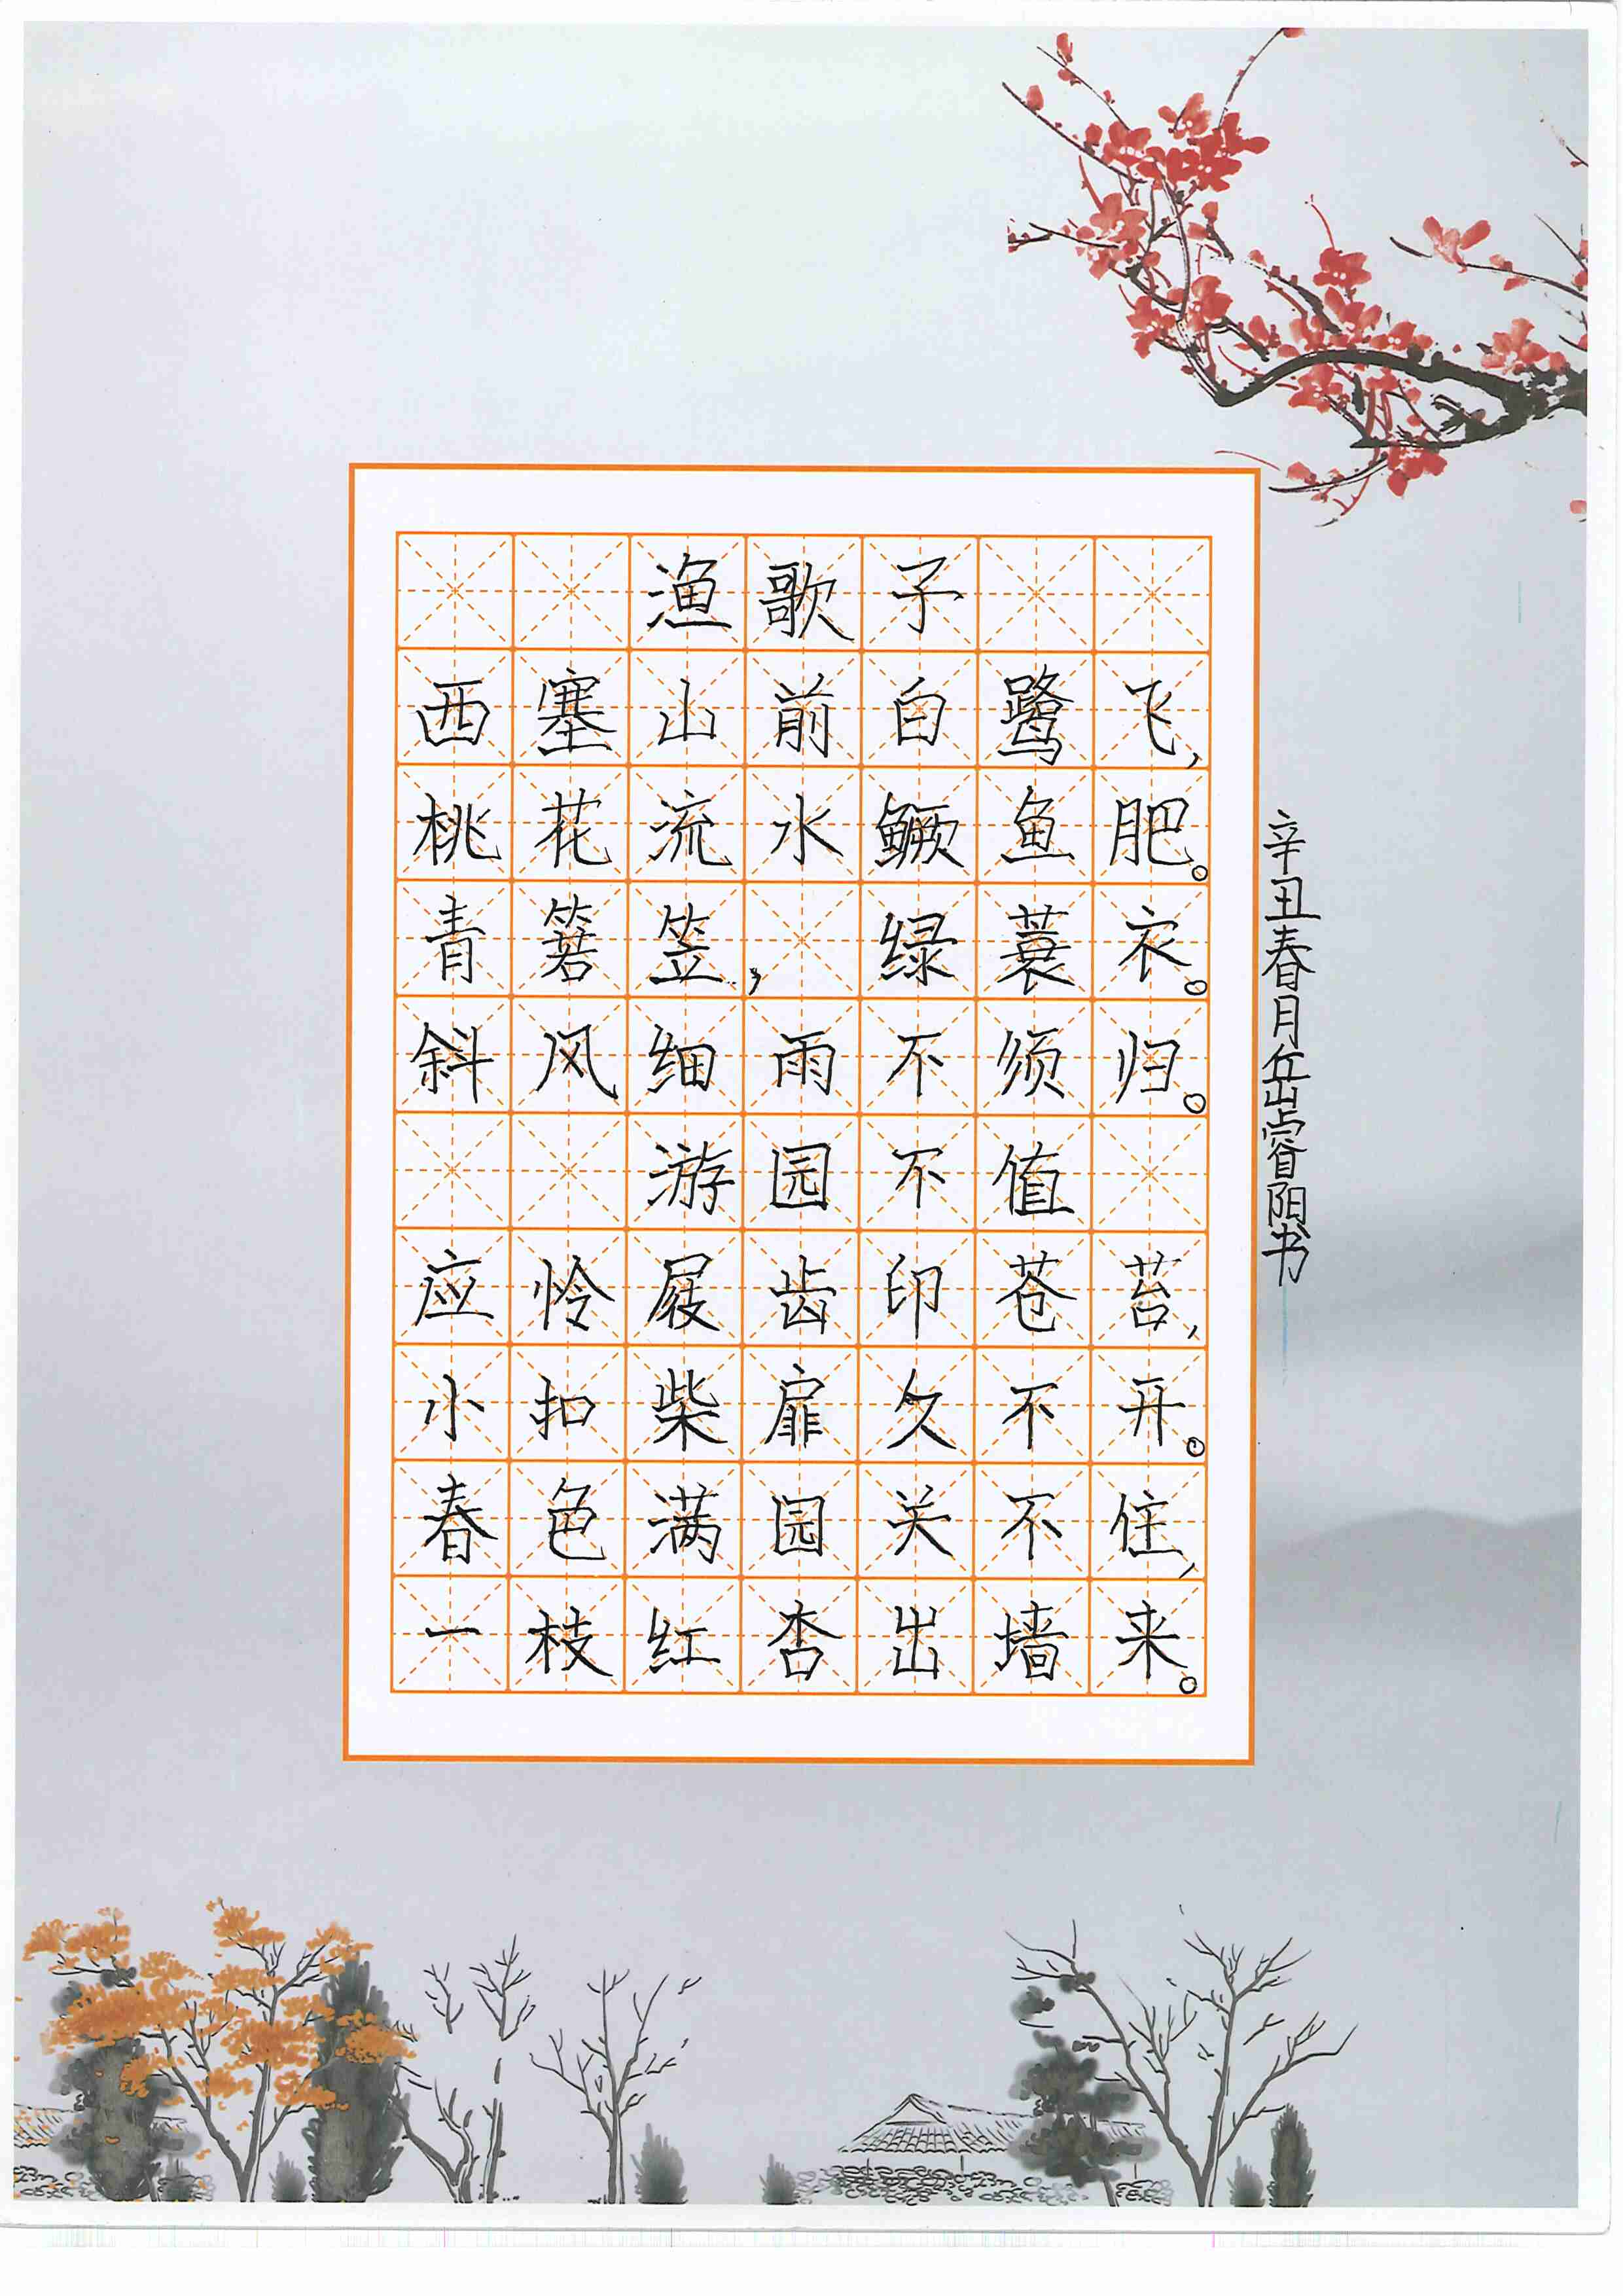 渔歌子
西塞山前白鹭飞，
桃花流水鳜鱼肥。
青箬笠，绿蓑衣。
斜风细雨不须归。
游园不值
应怜屐齿印苍苔，
小扣柴扉久不开。
春色满园关不住，
一枝红杏出墙来。
辛丑春月岳睿阳书